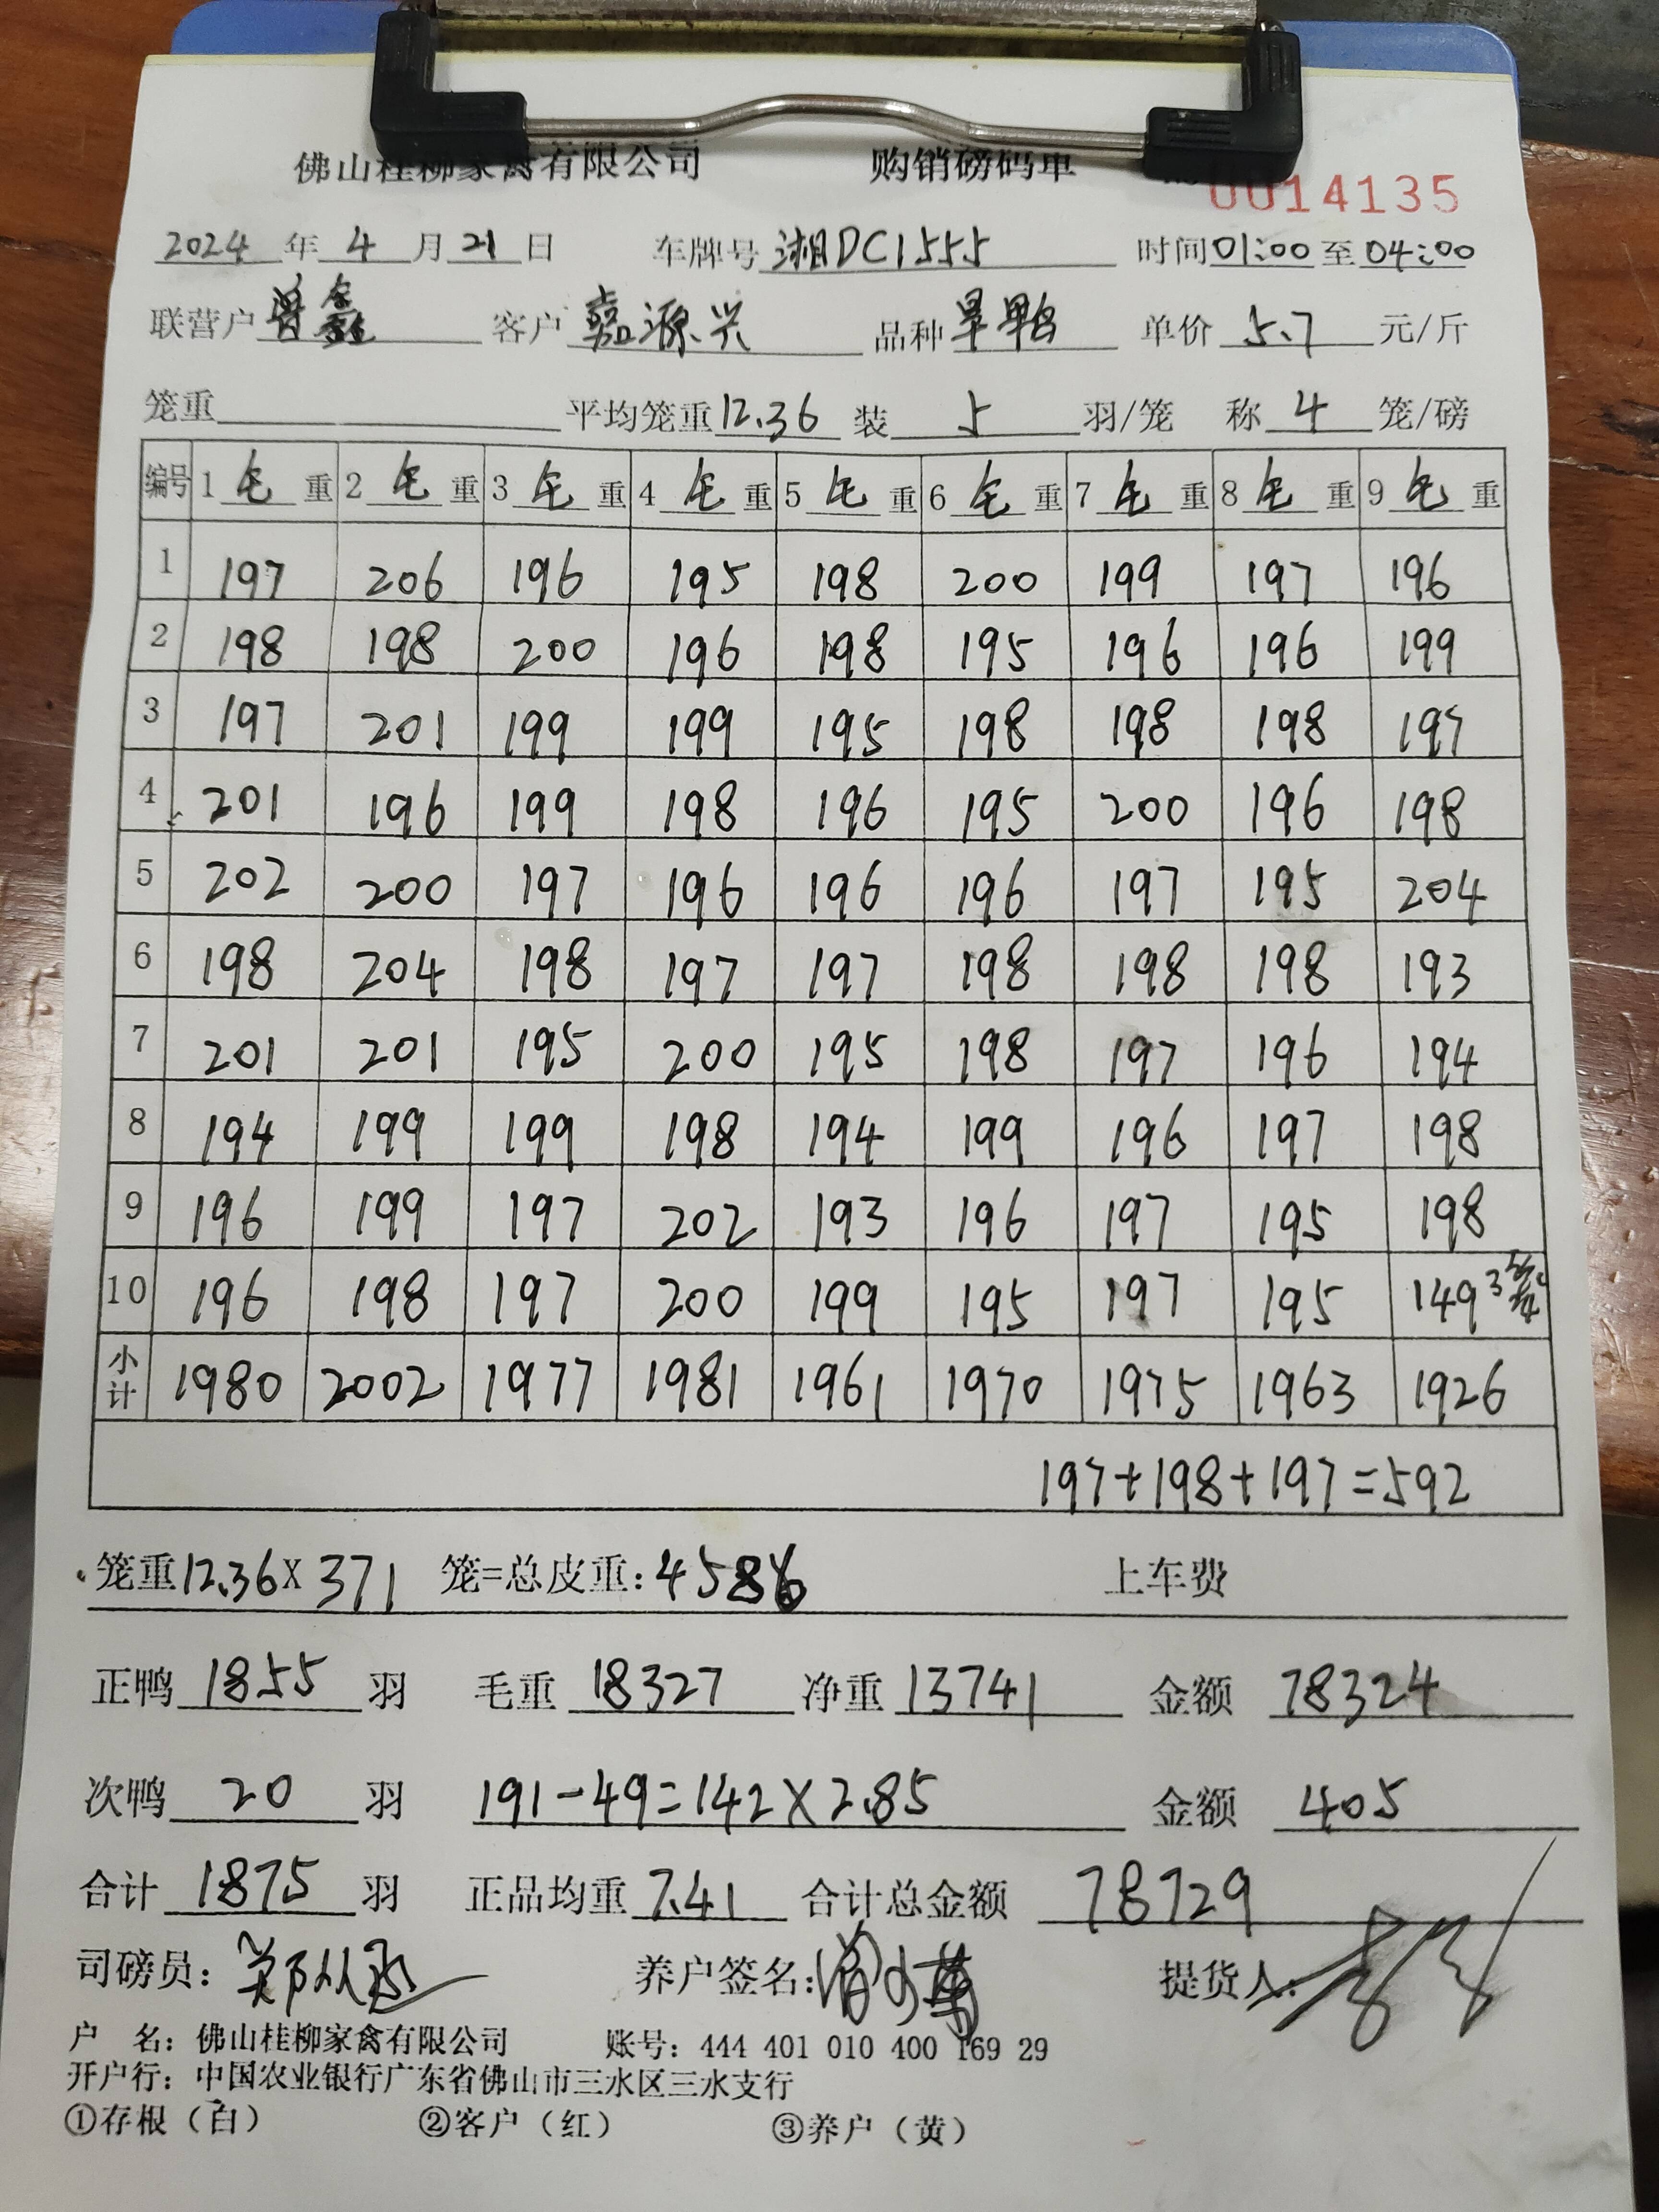 佛山桂柳家禽有限公司 购销磅码单 0014135
2024年4月21日 车牌号湘DC1555 时间01:00至04:00
联营户曾鑫 客户嘉源兴 品种旱鸭 单价5.7元/斤
笼重 平均笼重12.36 装5羽/笼 称4笼/磅
编号 1毛重 2毛重 3毛重 4毛重 5毛重 6毛重 7毛重 8毛重 9毛重
1 197 206 196 195 198 200 199 197 196
2 198 198 200 196 198 195 196 196 199
3 197 201 199 199 195 198 198 198 197
4 201 196 199 198 196 195 200 196 198
5 202 200 197 196 196 196 197 195 204
6 198 204 198 197 197 198 198 198 193
7 201 201 195 200 195 198 197 196 194
8 194 199 199 198 194 199 196 197 198
9 196 199 197 202 193 196 197 195 198
10 196 198 197 200 199 195 197 195 149 3笼
小计 1980 2002 1977 1981 1961 1970 1975 1963 1926
197+198+197=592
笼重12.36X371笼=总皮重:4586 上车费
正鸭1855羽 毛重18327 净重13741 金额78324
次鸭20羽 191-49=142X2.85 金额405
合计1875羽 正品均重7.41 合计总金额78729
司磅员: 养户签名: 提货人:
户 名: 佛山桂柳家禽有限公司 账号: 444 401 010 400 169 29
开户行: 中国农业银行广东省佛山市三水区三水支行
①存根（白） ②客户（红） ③养户（黄）